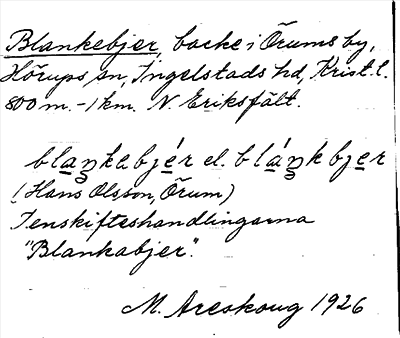 Blankebjer, backe i Örums by,
Hörups sn, Ingelstads hd, Krist. l.
800 m. - 1 km. N. Eriksfält.
blaŋkabjér el. bláŋkbjer
(Hans Olsson, Örum)
Ienskifteshandlingarna
"Blankabjer".
M. Areskoug 1926